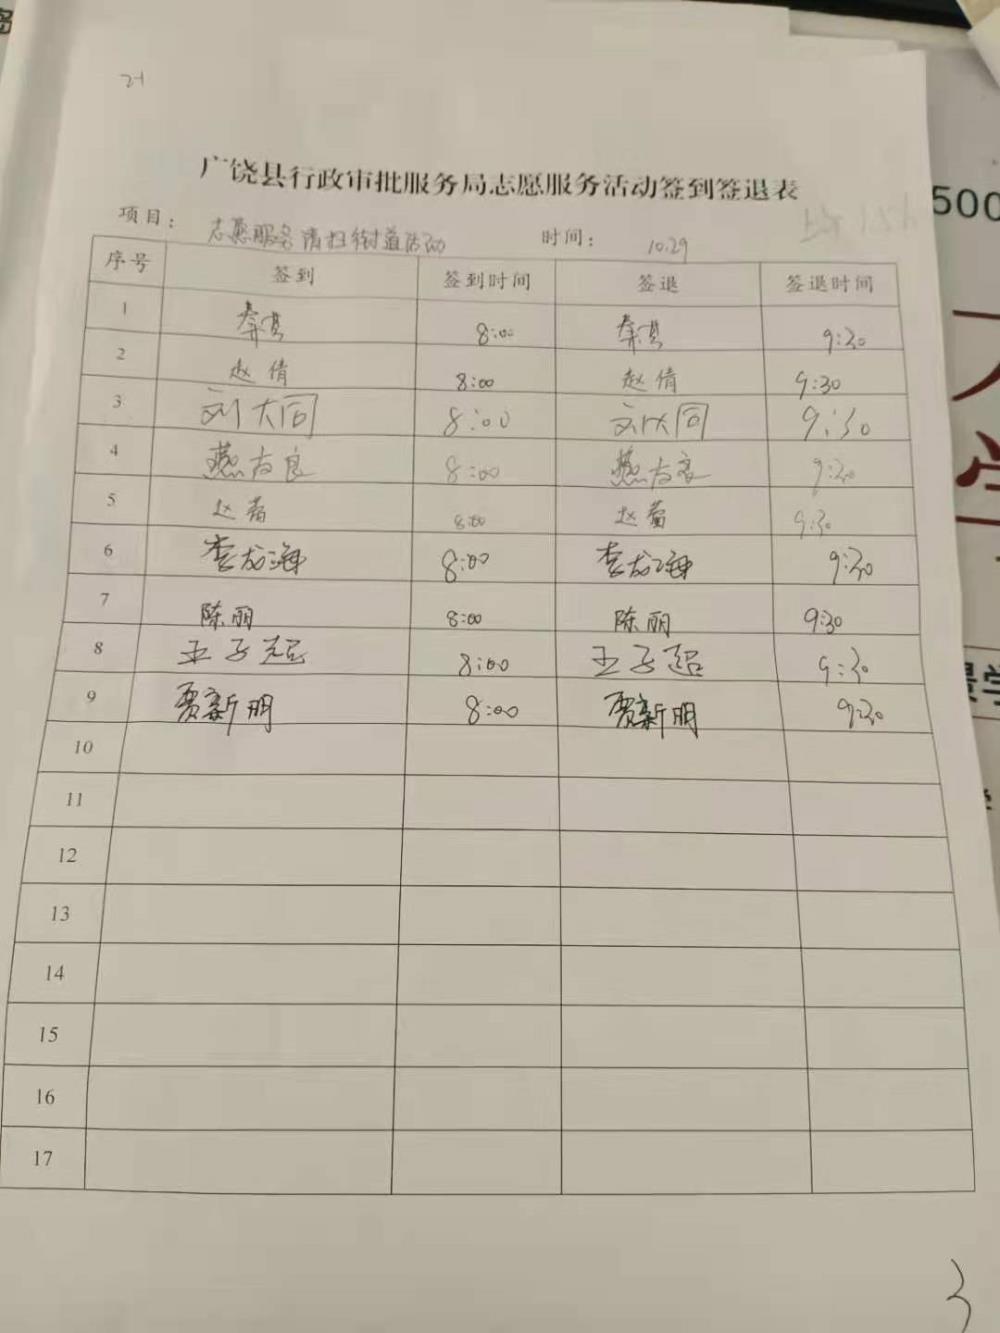 21
广饶县行政审批服务局志愿服务活动签到签退表
项目： 志愿服务清扫街道活动 时间： 10.29
序号 签到 签到时间 签退 签退时间
1 秦淇 8:00 秦淇 9:30
2 赵倩 8:00 赵倩 9:30
3 刘大同 8:00 刘大同 9:30
4 燕友良 8:00 燕友良 9:30
5 赵 8:00 赵 9:30
6 李龙海 8:00 李龙海 9:30
7 陈丽 8:00 陈丽 9:30
8 王子超 8:00 王子超 9:30
9 贾新明 8:00 贾新明 9:30
10
11
12
13
14
15
16
17
3
500
学